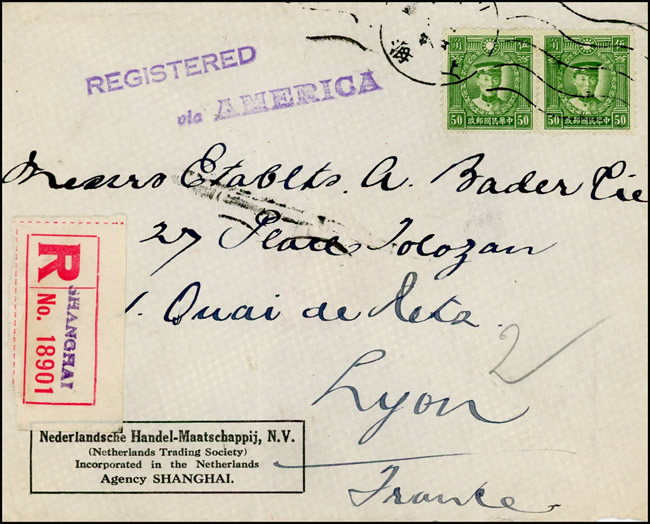 REGISTERED
via AMERICA
海
上
50 中華民國郵政 50
50 中華民國郵政 50
Messrs Etablts. A. Bader & Cie
27 Place Tolozan
1. Quai de Retz.
Lyon
2
France
R
SHANGHAI
No. 18901
Nederlandsche Handel-Maatschappij, N.V.
(Netherlands Trading Society)
Incorporated in the Netherlands
Agency SHANGHAI.